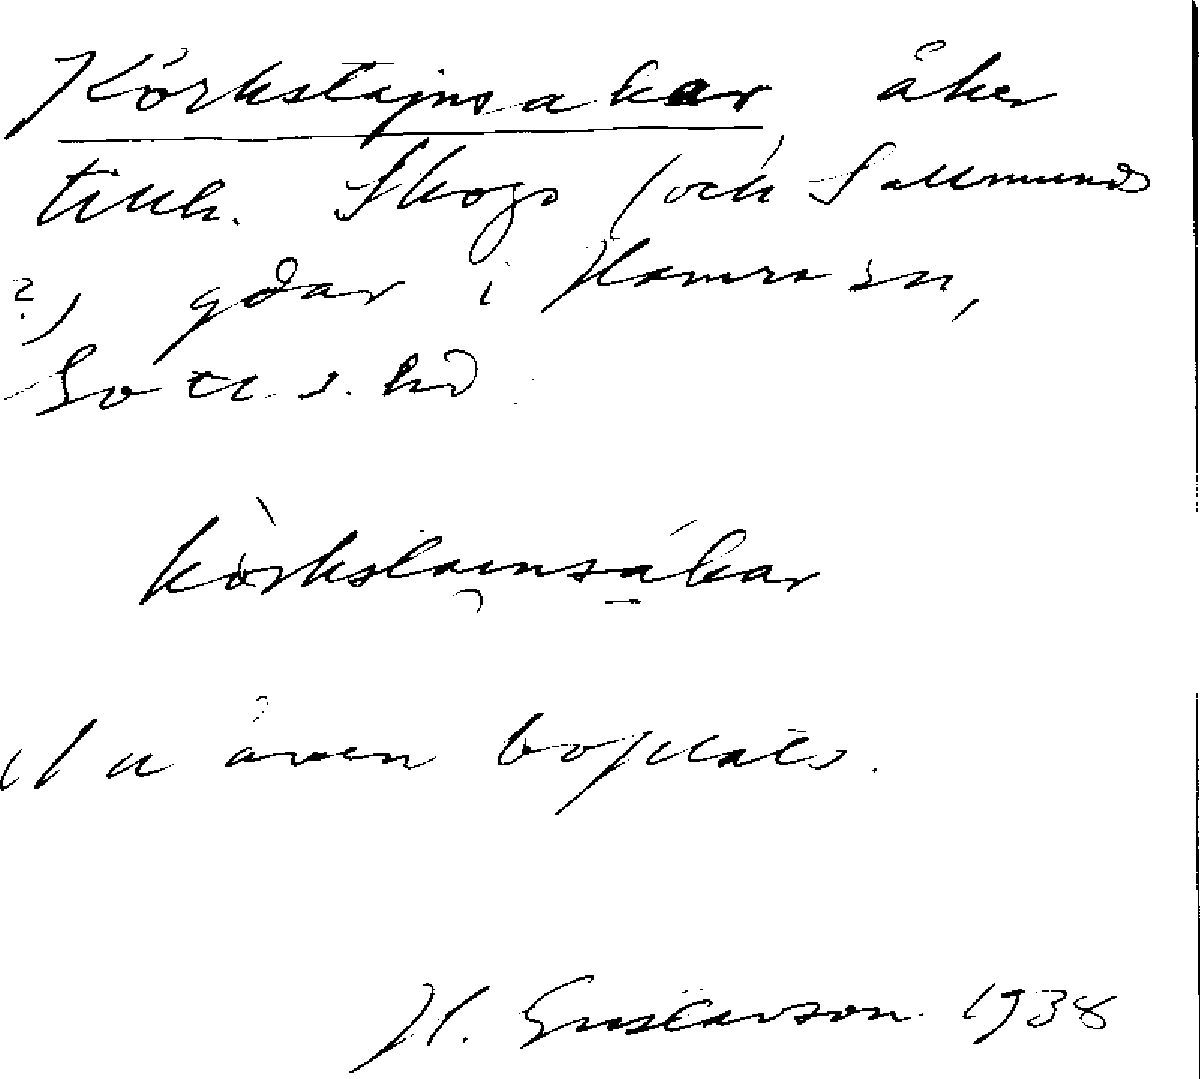 Körkstajnsakar åker
tillh. Skogs (och Sallmunds
?) gdar i Hamra sn,
Gotl. s. hd.
körkstainsákar
Nu även boplats.
H. Gustavson 1938